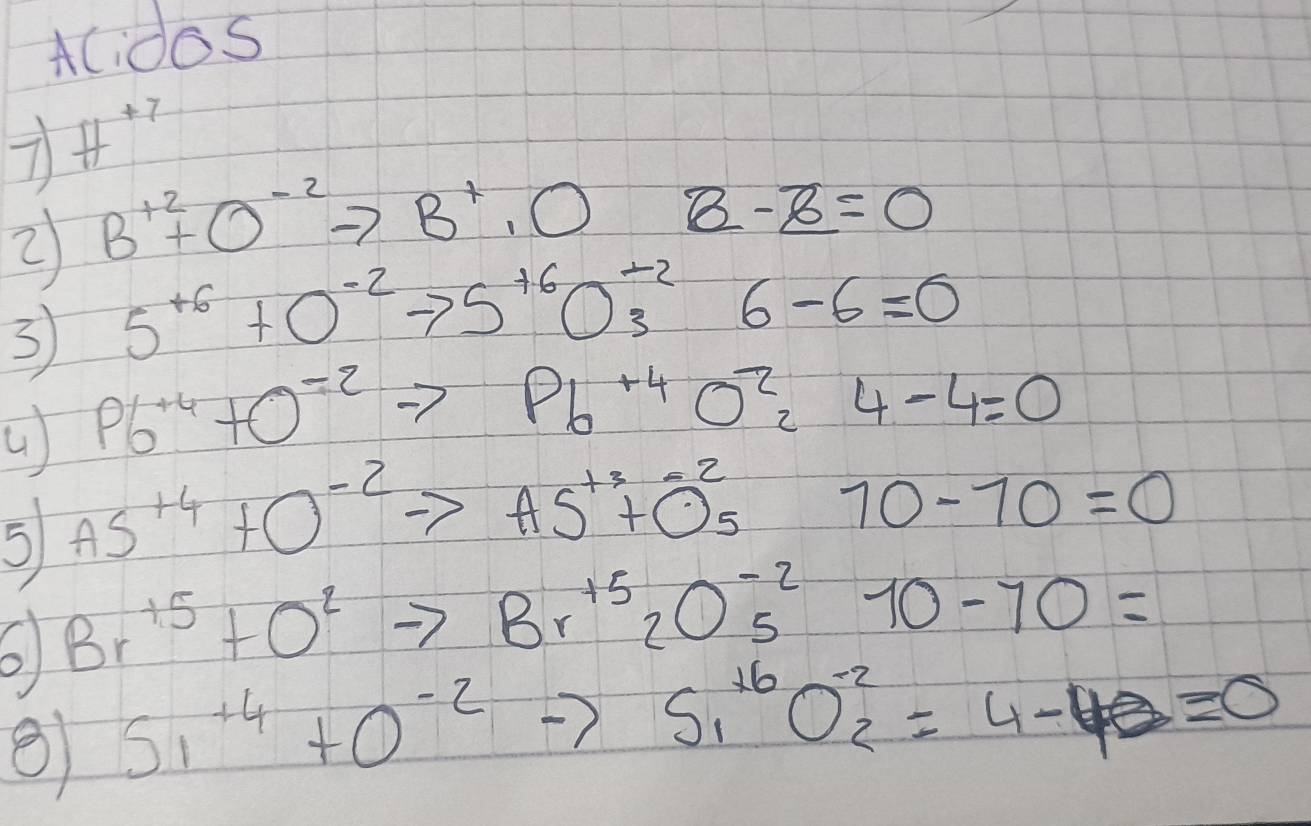 Acidos
1) H⁺¹
2) B⁺² + O⁻² → B⁺ . O 2 - 2 = 0
3) S⁺⁶ + O⁻² → S⁺⁶ O₃⁺² 6 - 6 = 0
4) Pb⁺⁴ + O⁻² → Pb⁺⁴ O⁻²₂ 4 - 4 = 0
5) AS⁺⁴ + O⁻² → AS⁺³ + O₅⁻² 10 - 10 = 0
6) Br⁺⁵ + O² → Br⁺⁵₂ O₅⁻² 10 - 10 =
8) Si⁺⁴ + O⁻² → Si⁺⁶ O₂⁻² = 4 - 4 = 0